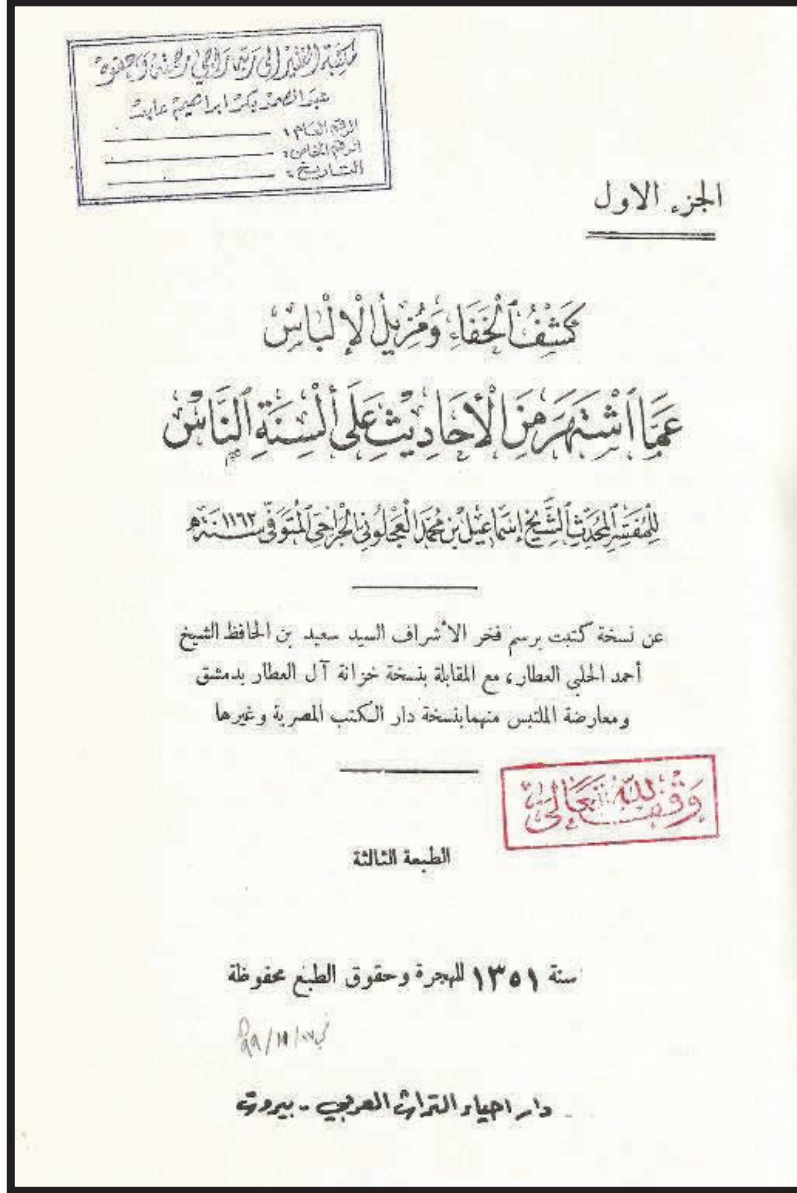 مكتبة الفقير إلى ربه راجي رحمته وعفوه
عبد الصمد بكر ابراهيم عابد
الرقم العام :
الرقم الخاص :
التاريخ :
الجزء الاول
كَشْفُ ٱلْخَفَاءِ وَمُزِيلُ ٱلْإِلْبَاسِ
عَمَّا ٱشْتَهَرَ مِنَ ٱلْأَحَادِيثِ عَلَى أَلْسِنَةِ ٱلنَّاسِ
لِلْمُفَسِّرِ ٱلْمُحَدِّثِ ٱلشَّيْخِ إِسْمَاعِيلَ بْنِ مُحَمَّدٍ ٱلْعَجْلُونِيِّ ٱلْجَرَّاحِيِّ ٱلْمُتَوَفَّى سَنَة ١١٦٢ هـ
عن نسخة كتبت برسم فخر الأشراف السيد سعيد بن الحافظ الشيخ
أحمد الحلبي العطار ، مع المقابلة بنسخة خزانة آل العطار بدمشق
ومعارضة الملتبس منهما بنسخة دار الكتب المصرية وغيرها
وَقْفٌ لِلَّهِ تَعَالَى
الطبعة الثالثة
سنة ١٣٥١ للهجرة وحقوق الطبع محفوظة
دار احياء التراث العربي - بيروت